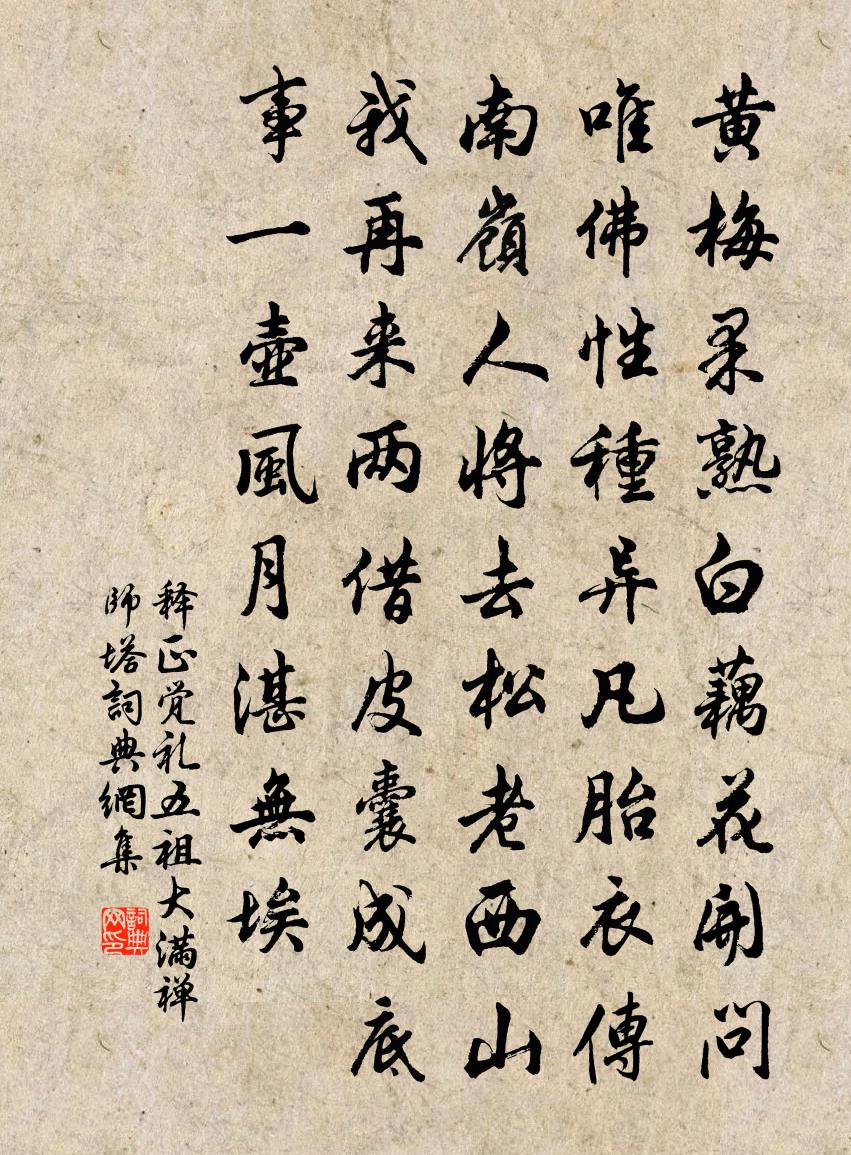 黄梅果熟白藕花開問
唯佛性種异凡胎衣傳
南嶺人將去松老西山
我再来两借皮囊成底
事一壺風月湛無埃
释正觉礼五祖大满禅
師塔詞典網集
詞典网印